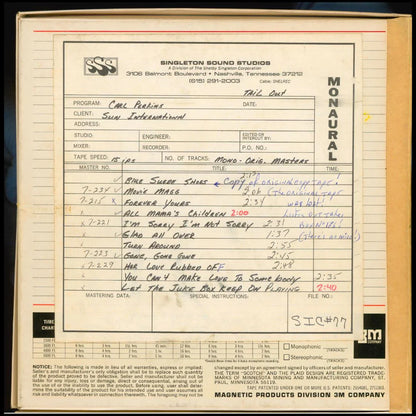 SSS
SINGLETON SOUND STUDIOS
A Division of The Shelby Singleton Corporation
3106 Belmont Boulevard • Nashville, Tennessee 37212
(615) 291-2003 Cable: SHELREC
TAIL OUT
MONAURAL
PROGRAM: CARL PERKINS DATE:
CLIENT: SUN INTERNATIONAL
ADDRESS:
STUDIO: ENGINEER: EDITED OR INTERCUT BY:
MIXER: RECORDER: P.O. NO.:
TAPE SPEED: 15 IPS NO. OF TRACKS: MONO - ORIG. MASTERS
MASTER NO. TITLE: TIME:
BLUE SUEDE SHOES ← COPY OF ORIGINAL COPY TAPE.
7-234 ✓ MOVIE MAGG 2:01 (THE ORIGINAL TAPE
7-215 X FOREVER YOURS 2:34 WAS LOST!
✓ ALL MAMA'S CHILDREN 2:00
x 7-221 I'M SORRY I'M NOT SORRY 2:31
✓ GLAD ALL OVER 1:37
TURN AROUND 2:55
7-223 ✓ GONE, GONE, GONE 2:45
x 7-229 HER LOVE RUBBED OFF 2:48
YOU CAN'T MAKE LOVE TO SOMEBODY 2:35
✓ LET THE JUKE BOX KEEP ON PLAYING 2:40
MASTERING DATA: SPECIAL INSTRUCTIONS: FILE NO.:
SIC#77
Monophonic
Stereophonic
3M
COMPANY
NOTICE: The following is made in lieu of all warranties, express or implied:
Seller's and manufacturer's only obligation shall be to replace such quantity of
the product proved to be defective. Neither seller nor manufacturer shall be
liable for any injury, loss or damage, direct or consequential, arising out of
use of or the inability to use the product. Before using, user shall determine
the suitability of the product for his intended use, and user assumes all
risk and liability whatsoever in connection therewith. The foregoing may not be
changed except by an agreement signed by officers of seller and manufacturer.
THE TERM "SCOTCH" AND THE PLAID DESIGN ARE REGISTERED TRADEMARKS
OF MINNESOTA MINING AND MANUFACTURING COMPANY, ST.
PAUL, MINNESOTA 55119.
MAGNETIC PRODUCTS DIVISION 3M COMPANY